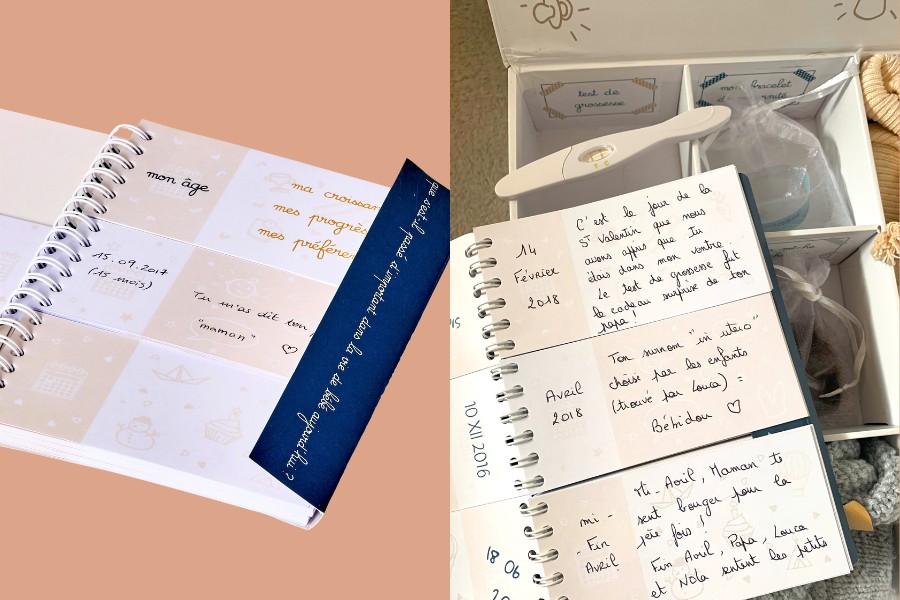 mon âge
ma croissan
mes progrès
mes préféren
15.09.2017
(15 mois)
Tu m'as dit ton
"maman" ♡
que s'est-il passé d'important dans la vie de bébé aujourd'hui ?
test de
grossesse
mon bracelet
14
Février
2018
C'est le jour de la
St Valentin que nous
avons appris que tu
étais dans mon ventre.
Le test de grossesse fut
le cadeau surprise de ton
papa!
Avril
2018
Ton surnom "in utero"
choisi par les enfants
(trouvé par Louca) =
Bébidou ♡
10 XII 2016
mi -
- Fin
Avril
Mi-Avril, Maman te
sent bouger pour la
1ère fois !
Fin Avril, Papa, Louca
et Nola sentent les petits
18 06